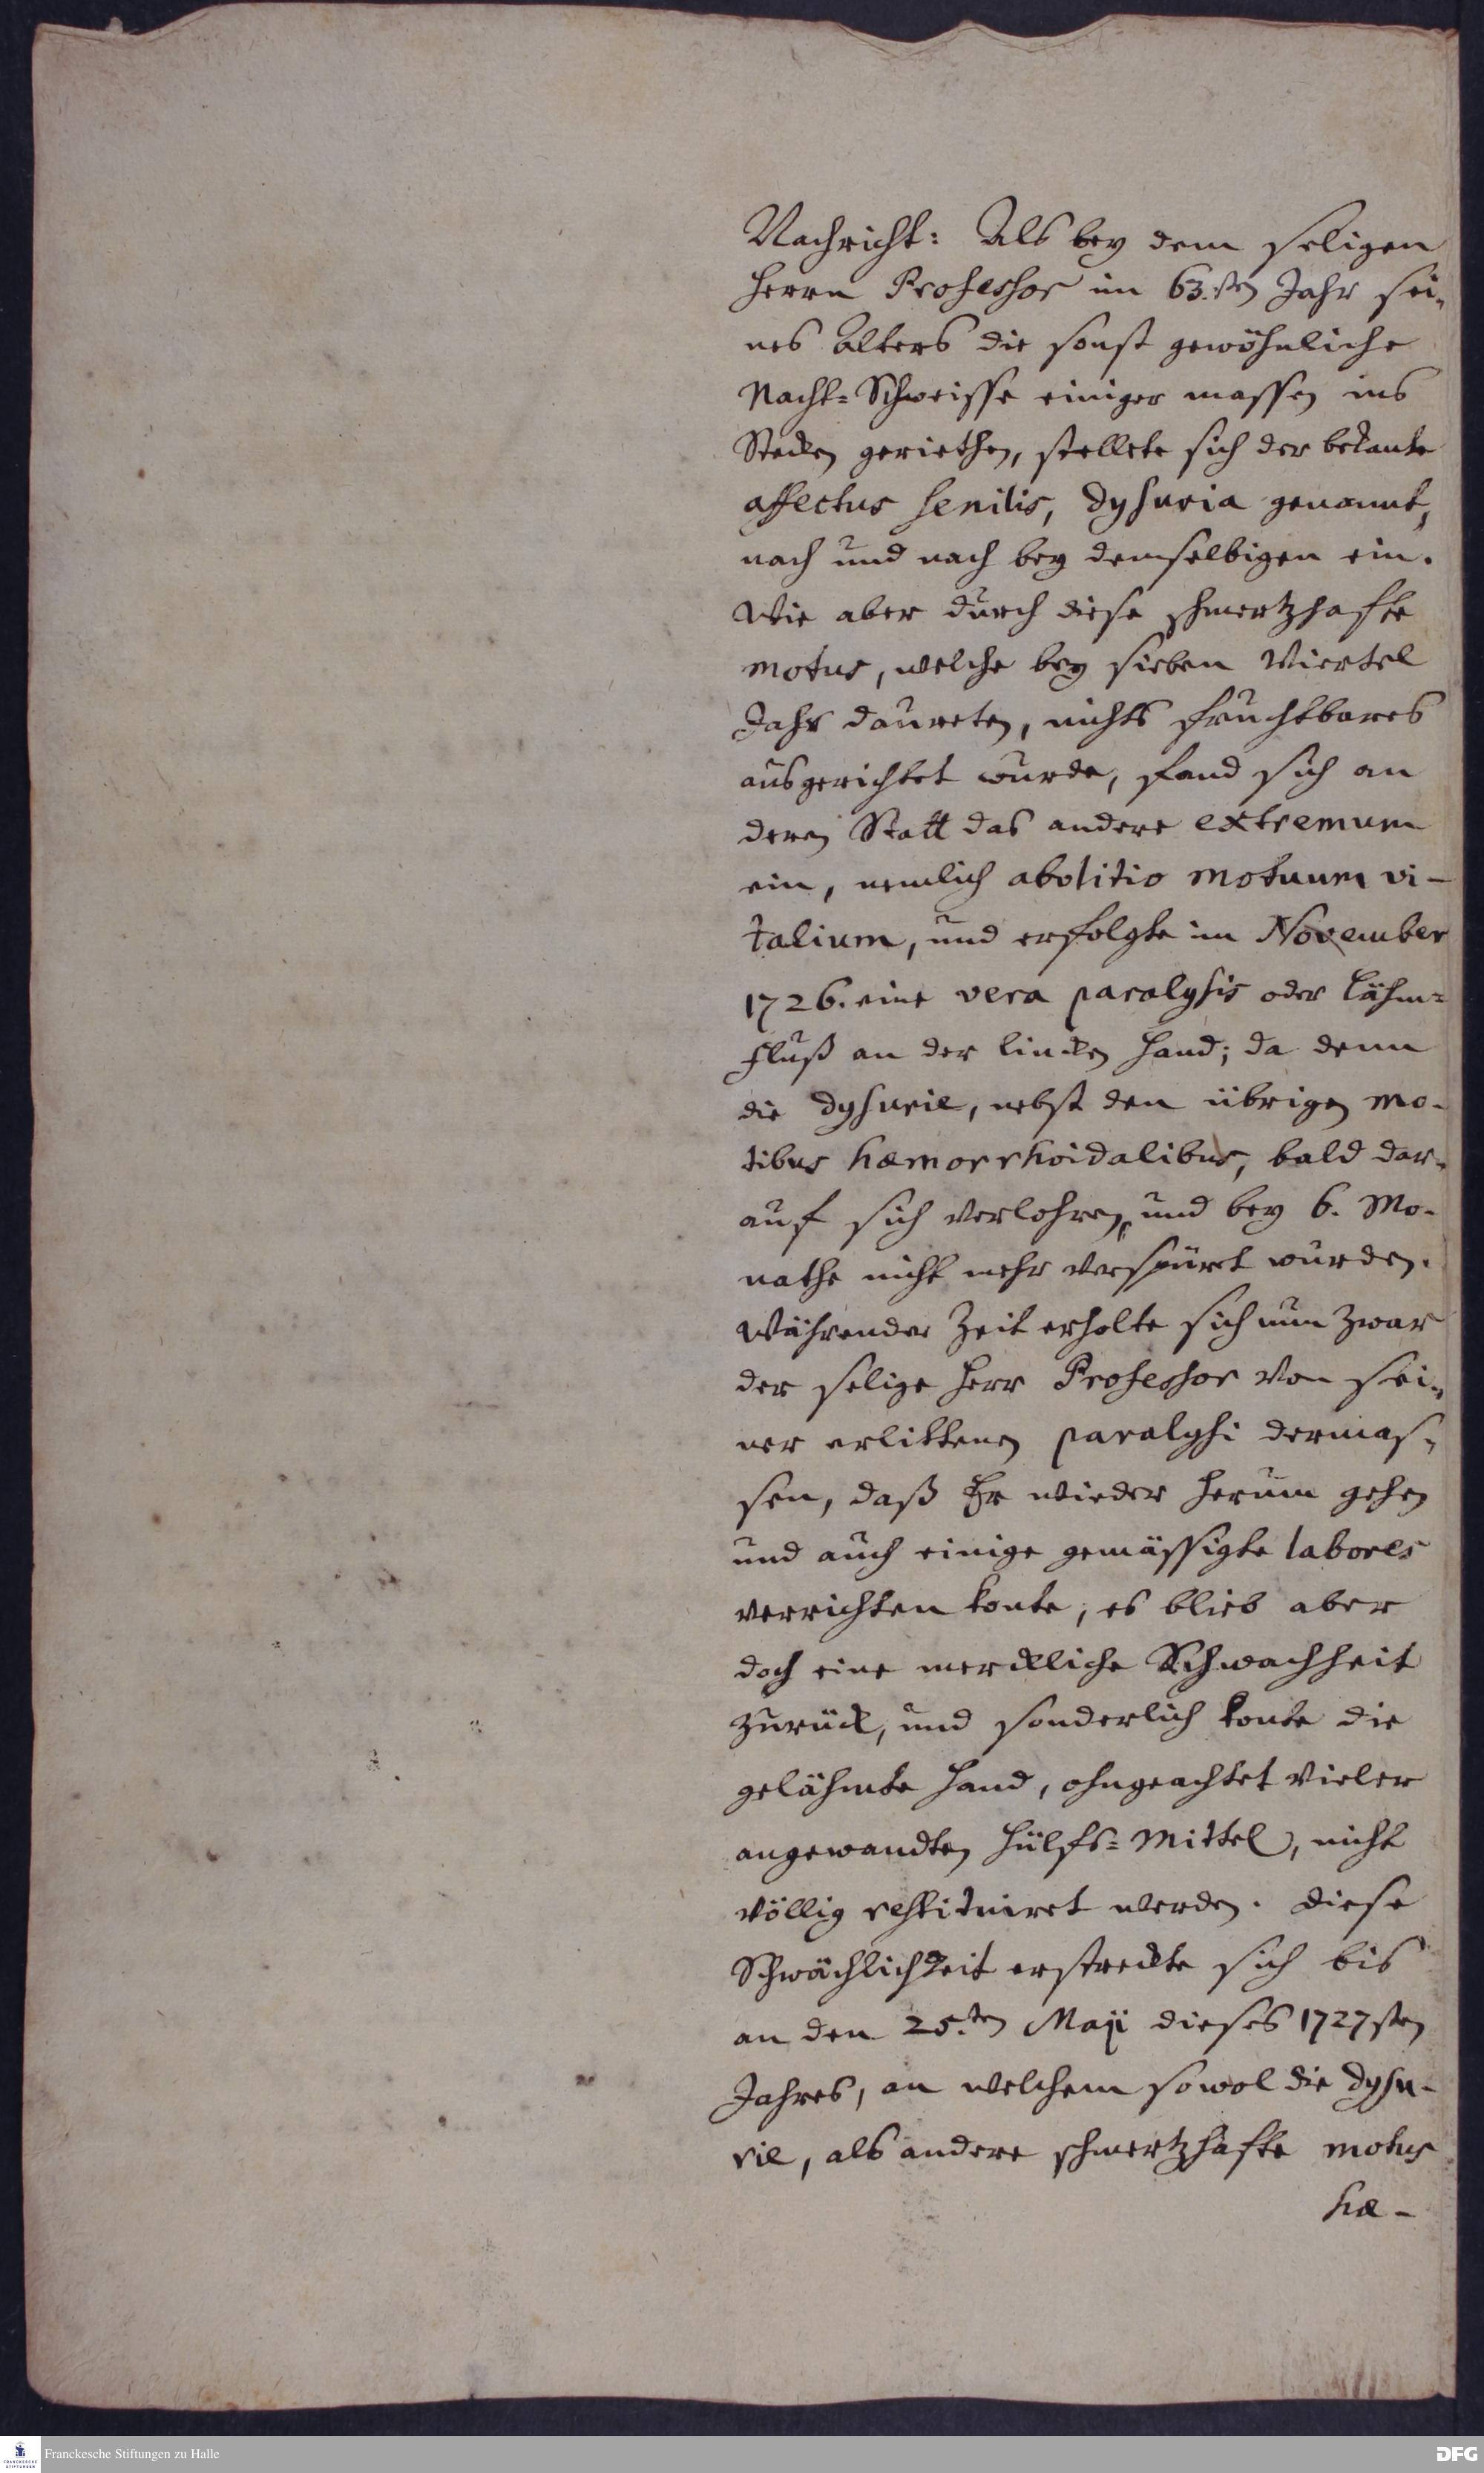 Nachricht: Als bey dem seligen
Herrn Professor im 63.sten Jahr sei-
nes Alters die sonst gewöhnliche
Nacht-Schweisse einiger massen ins
Stecken geriethen, stellete sich der bekante
affectus senilis, dysuria genannt,
nach und nach bey demselbigen ein.
Wie aber durch diese schmertzhafte
motus, welche bey sieben Viertel
Jahr daureten, nichts fruchtbares
ausgerichtet wurde, fand sich an
deren Statt das andere extremum
ein, nemlich abolitio motuum vi-
talium, und erfolgte im November
1726. eine vera paralysis oder Lähm-
Fluß an der lincken Hand; da denn
die dysurie, nebst den übrigen mo-
tibus hæmorrhoidalibus, bald dar-
auf sich verlohren, und bey 6. Mo-
nathe nicht mehr verspüret wurden.
Währender Zeit erholte sich nun zwar
der selige Herr Professor von sei-
ner erlittenen paralysi dermas-
sen, daß Er wieder herum gehen
und auch einige gemässigte labores
verrichten konte; es blieb aber
doch eine merckliche Schwachheit
zurück, und sonderlich konte die
gelähmte Hand, ohngeachtet vieler
angewandten Hülfs-Mittel, nicht
völlig restituiret werden. Diese
Schwächlichkeit erstreckte sich bis
an den 25.ten Maji dieses 1727sten
Jahres, an welchem sowol die dysu-
rie, als andere schmertzhafte motus
hæ-
Franckesche Stiftungen zu Halle
FRANCKESCHE STIFTUNGEN
DFG